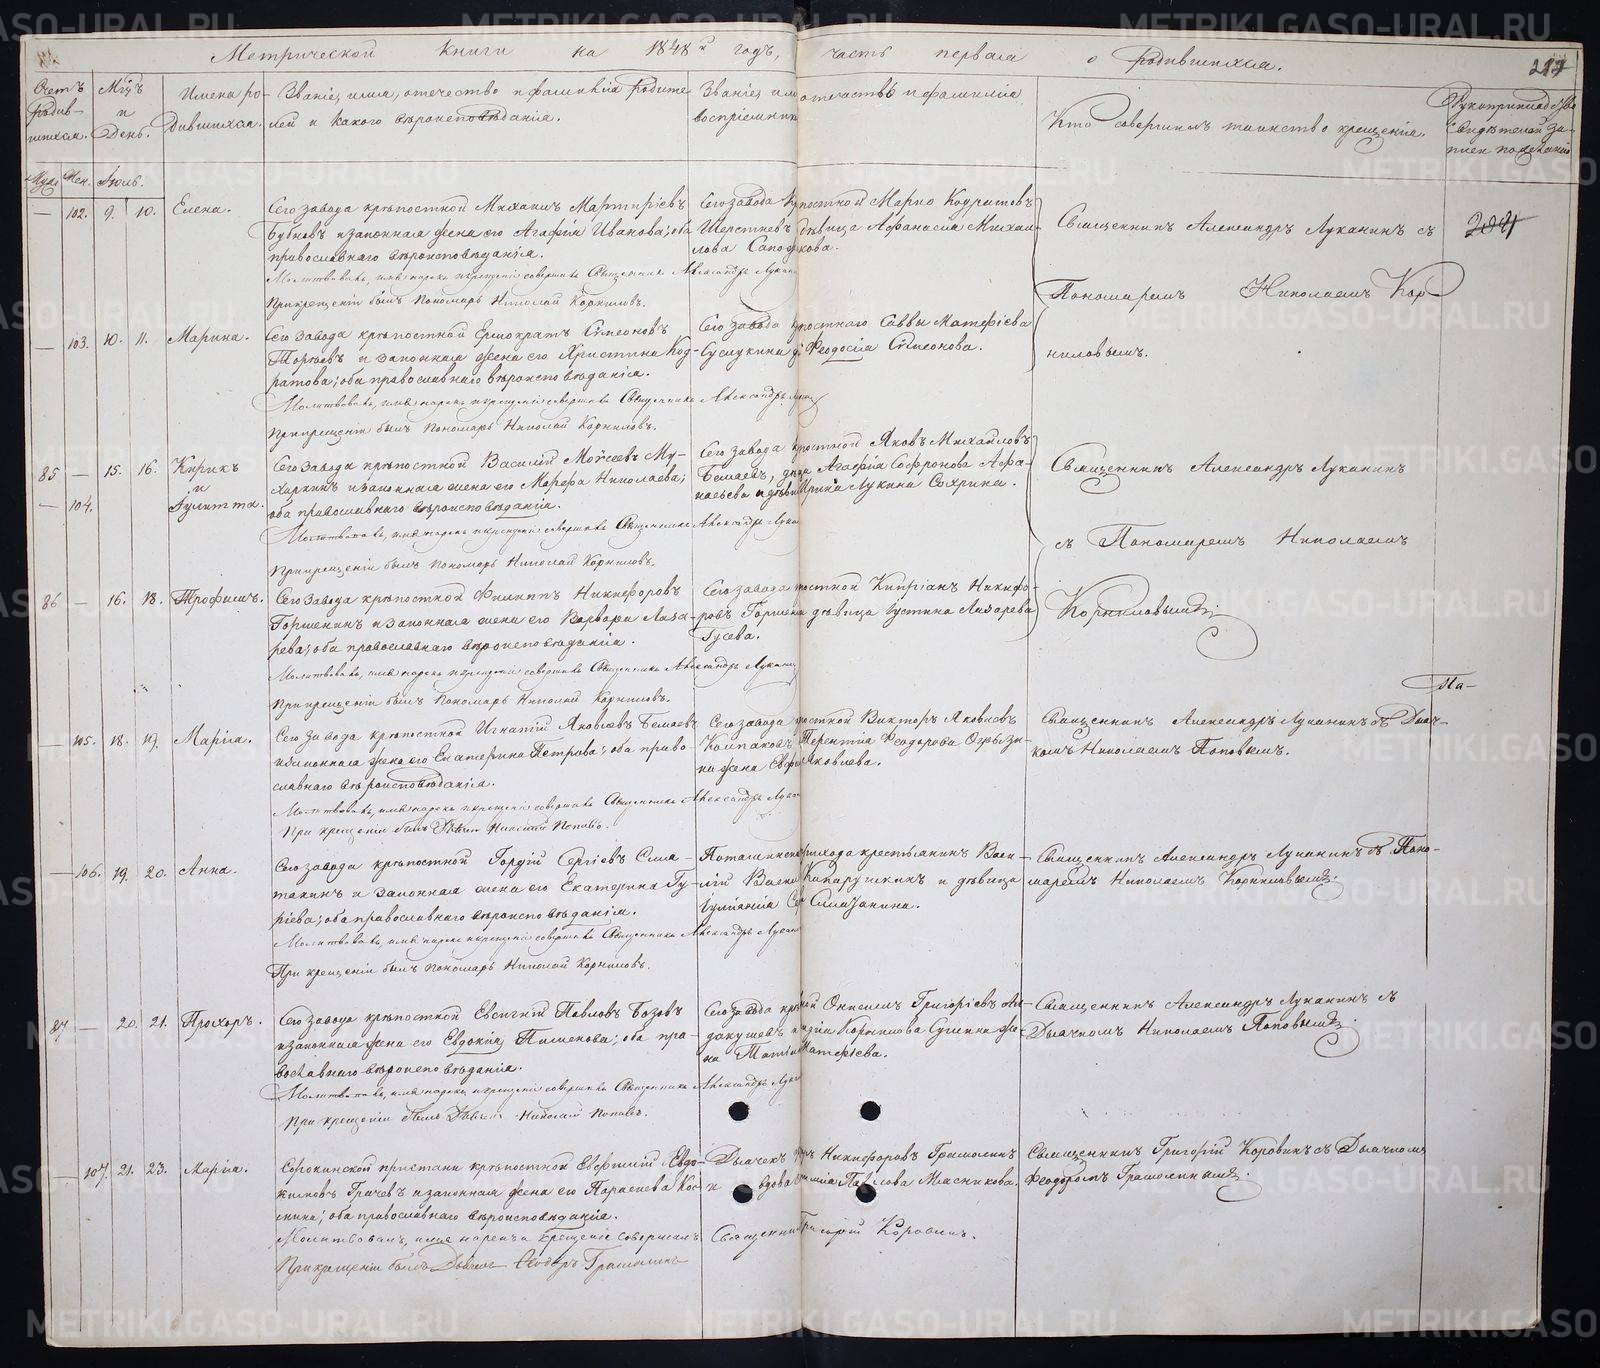 Метрической книги на 1848й годъ, часть первая о родившихся.
217
Счетъ родив-шихся.
Мцъ и День.
Имена ро-дившихся.
Званіе, имя, отечество и фамилія родите-
лей и какого вѣроисповѣданія.
Званіе, имя отечество и фамилія
воспріемник
Кто совершилъ таинство крещенія.
Рукоприкладство свидѣтелей за-писи по желанію
Муж. Жен. Іюль.
— 102. 9. 10. Елена.
Сего завода крѣпостной Михаилъ Мартиріевъ
Бубновъ и законная жена его Агафія Иванова; оба
православнаго вѣроисповѣданія.
Молитвовалъ, имя нарекъ и крещеніе совершилъ Священникъ Александръ Лукан
При крещеніи былъ Пономарь Николай Корниловъ.
Сего завода постной Марко Кодратовъ
Шерстневъ дѣвица Афанасія Михаи-
лова
Священникъ Александръ Луканинъ съ
Пономаремъ Николаемъ Кор-
ниловымъ.
204
— 103. 10. 11. Марина.
Сего завода крѣпостной Ермократъ Симеоновъ
и законная жена его Христина Код-
ратова; оба православнаго вѣроисповѣданія.
Молитвовалъ, имя нарекъ и крещеніе совершилъ Священникъ Александръ
При крещеніи былъ Пономарь Николай Корниловъ.
Сего завода постнаго Саввы Матфіева
Феодосія Симеонова.
85 — 15. 16. Кирикъ
и
— 104. Іулитта.
Сего завода крѣпостной Василій Моѵсеевъ Му-
харкинъ и законная жена его Марфа Николаева;
оба православнаго вѣроисповѣданія.
Молитвовалъ, имя нарекъ и крещеніе совершилъ Священникъ Александръ Лука
При крещеніи былъ Пономарь Николай Корниловъ.
Сего завода постной Яковъ Михайловъ
Агафія Софронова Афа-
насьева и дѣви Ирина Лукина Сохрина.
Священникъ Александръ Луканинъ
съ Пономаремъ Николаемъ
Корниловымъ.
86 — 16. 18. Трофимъ.
Сего завода крѣпостной Филиппъ Никифоровъ
Горшенинъ и законная жена его Варвара Лаза-
рева; оба православнаго вѣроисповѣданія.
Молитвовалъ, имя нарекъ и крещеніе совершилъ Священникъ Александръ Лукани
При крещеніи былъ Пономарь Николай Корниловъ.
Сего завода постной Кипріанъ Никифо-
ровъ Горшени дѣвица Іустина Лазарева
Гусева.
Па-
— 105. 18. 19. Марія.
Сего завода крѣпостной Игнатій Яковлевъ
и законная жена его Екатерина Петрова; оба право-
славнаго вѣроисповѣданія.
Молитвовалъ, имя нарекъ и крещеніе совершилъ Священникъ Александръ Лукан
При крещеніи былъ Николай Поповъ.
Сего завода постной Викторъ Яковлевъ
Колпаковъ Терентія Феодорова
на жена Яковлева.
Священникъ Александръ Луканинъ съ Дьяч-
комъ Николаемъ Поповымъ.
— 106. 19. 20. Анна.
Сего завода крѣпостной Гордій Сергіевъ Сила-
и законная жена его Екатерина Гу-
ріева; оба православнаго вѣроисповѣданія.
Молитвовалъ, имя нарекъ и крещеніе совершилъ Священникъ Александръ Лукан
При крещеніи былъ Пономарь Николай Корниловъ.
прихода крестьянинъ Васи-
лій и дѣвица
Іуліанія
Священникъ Александръ Луканинъ съ Поно-
маремъ Николаемъ Корниловымъ.
87 — 20. 21. Прохоръ.
Сего завода крѣпостной Евсигній Павловъ Базовъ
и законная жена его Евдокія Пименова; оба пра-
вославнаго вѣроисповѣданія.
Молитвовалъ, имя нарекъ и крещеніе совершилъ Священникъ Александръ Лукан
При крещеніи былъ Николай Поповъ.
Сего завода Онисимъ Григоріевъ
Корнилова
Матфіева.
Священникъ Александръ Луканинъ съ
Дьячкомъ Николаемъ Поповымъ.
— 107. 21. 23. Марія.
Сорокинской пристани крѣпостной Евфимій Евдо-
кимовъ Грачевъ и законная жена его Параскева Кос-
мина; оба православнаго вѣроисповѣданія.
Молитвовалъ, имя нарекъ и крещеніе совершилъ Священникъ Григорій Коровинъ.
При крещеніи былъ Дьячекъ Ѳеодоръ Грамолинъ
Дьячекъ Никифоровъ Грамолинъ
и вдова Павлова Мясникова.
Священникъ Григорій Коровинъ съ Дьячкомъ
Феодоромъ Грамолинымъ.
METRIKI.GASO-URAL.RU